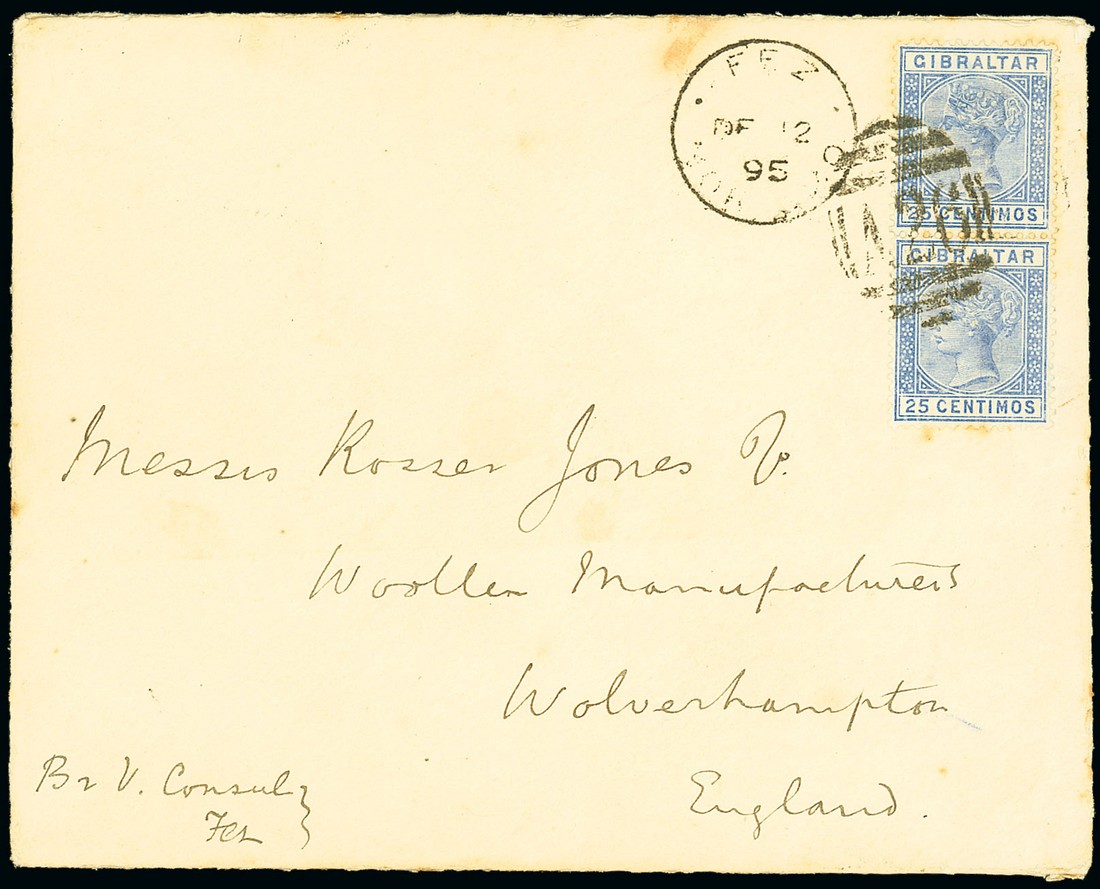 FEZ
DE 12
95
MOROCCO
GIBRALTAR
25 CENTIMOS
A26
GIBRALTAR
25 CENTIMOS
Messrs Rosser Jones
Woollen Manufacturers
Wolverhampton
England.
Br V. Consul
Fez